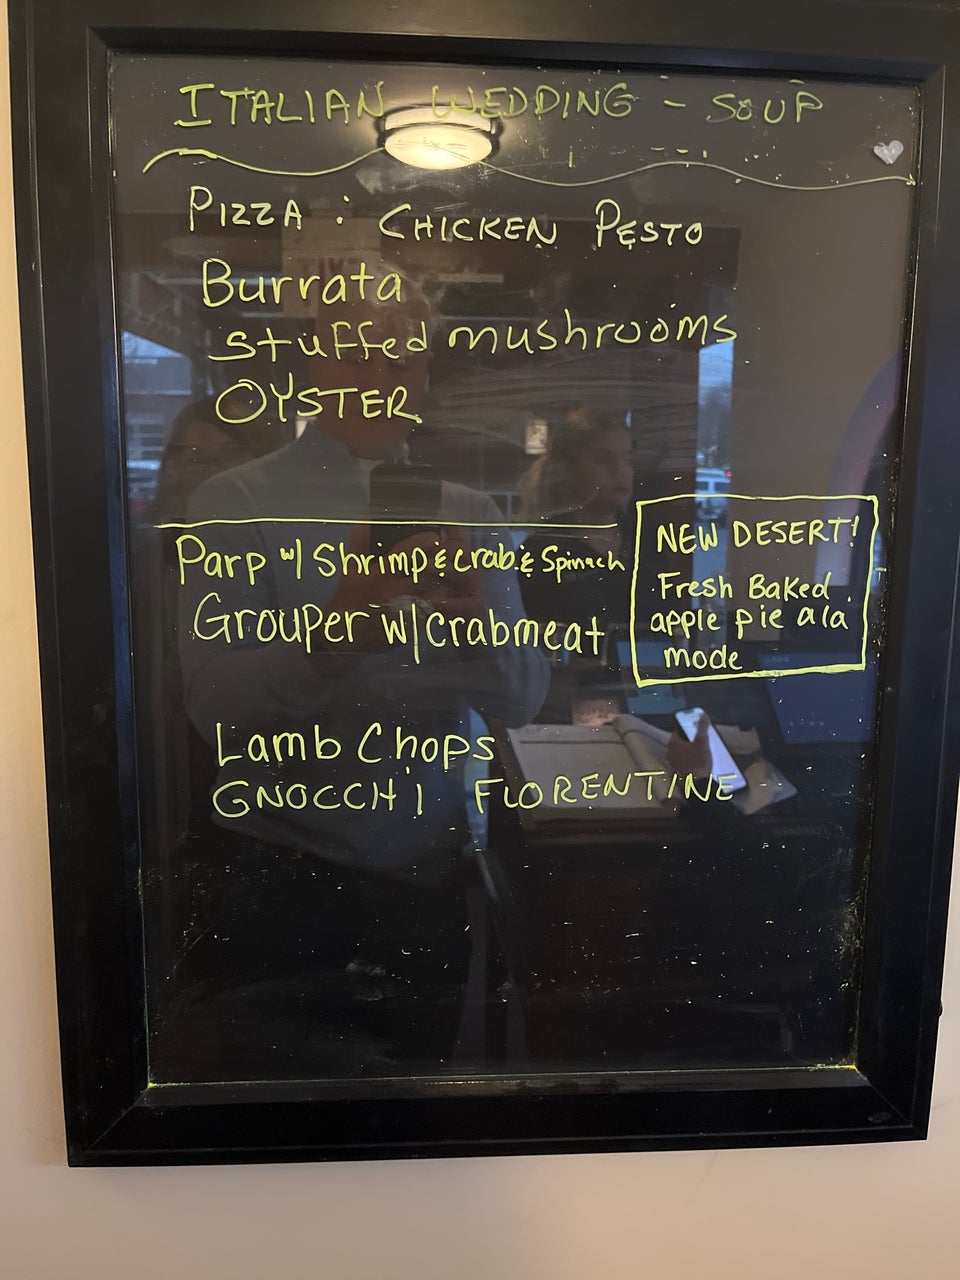 ITALIAN WEDDING - SOUP
PIZZA : CHICKEN PESTO
Burrata
stuffed mushrooms
OYSTER
Parp w/ Shrimp & crab & Spinach
Grouper w/ crabmeat
Lamb Chops
GNOCCHI FLORENTINE
NEW DESERT!
Fresh Baked
apple pie ala
mode